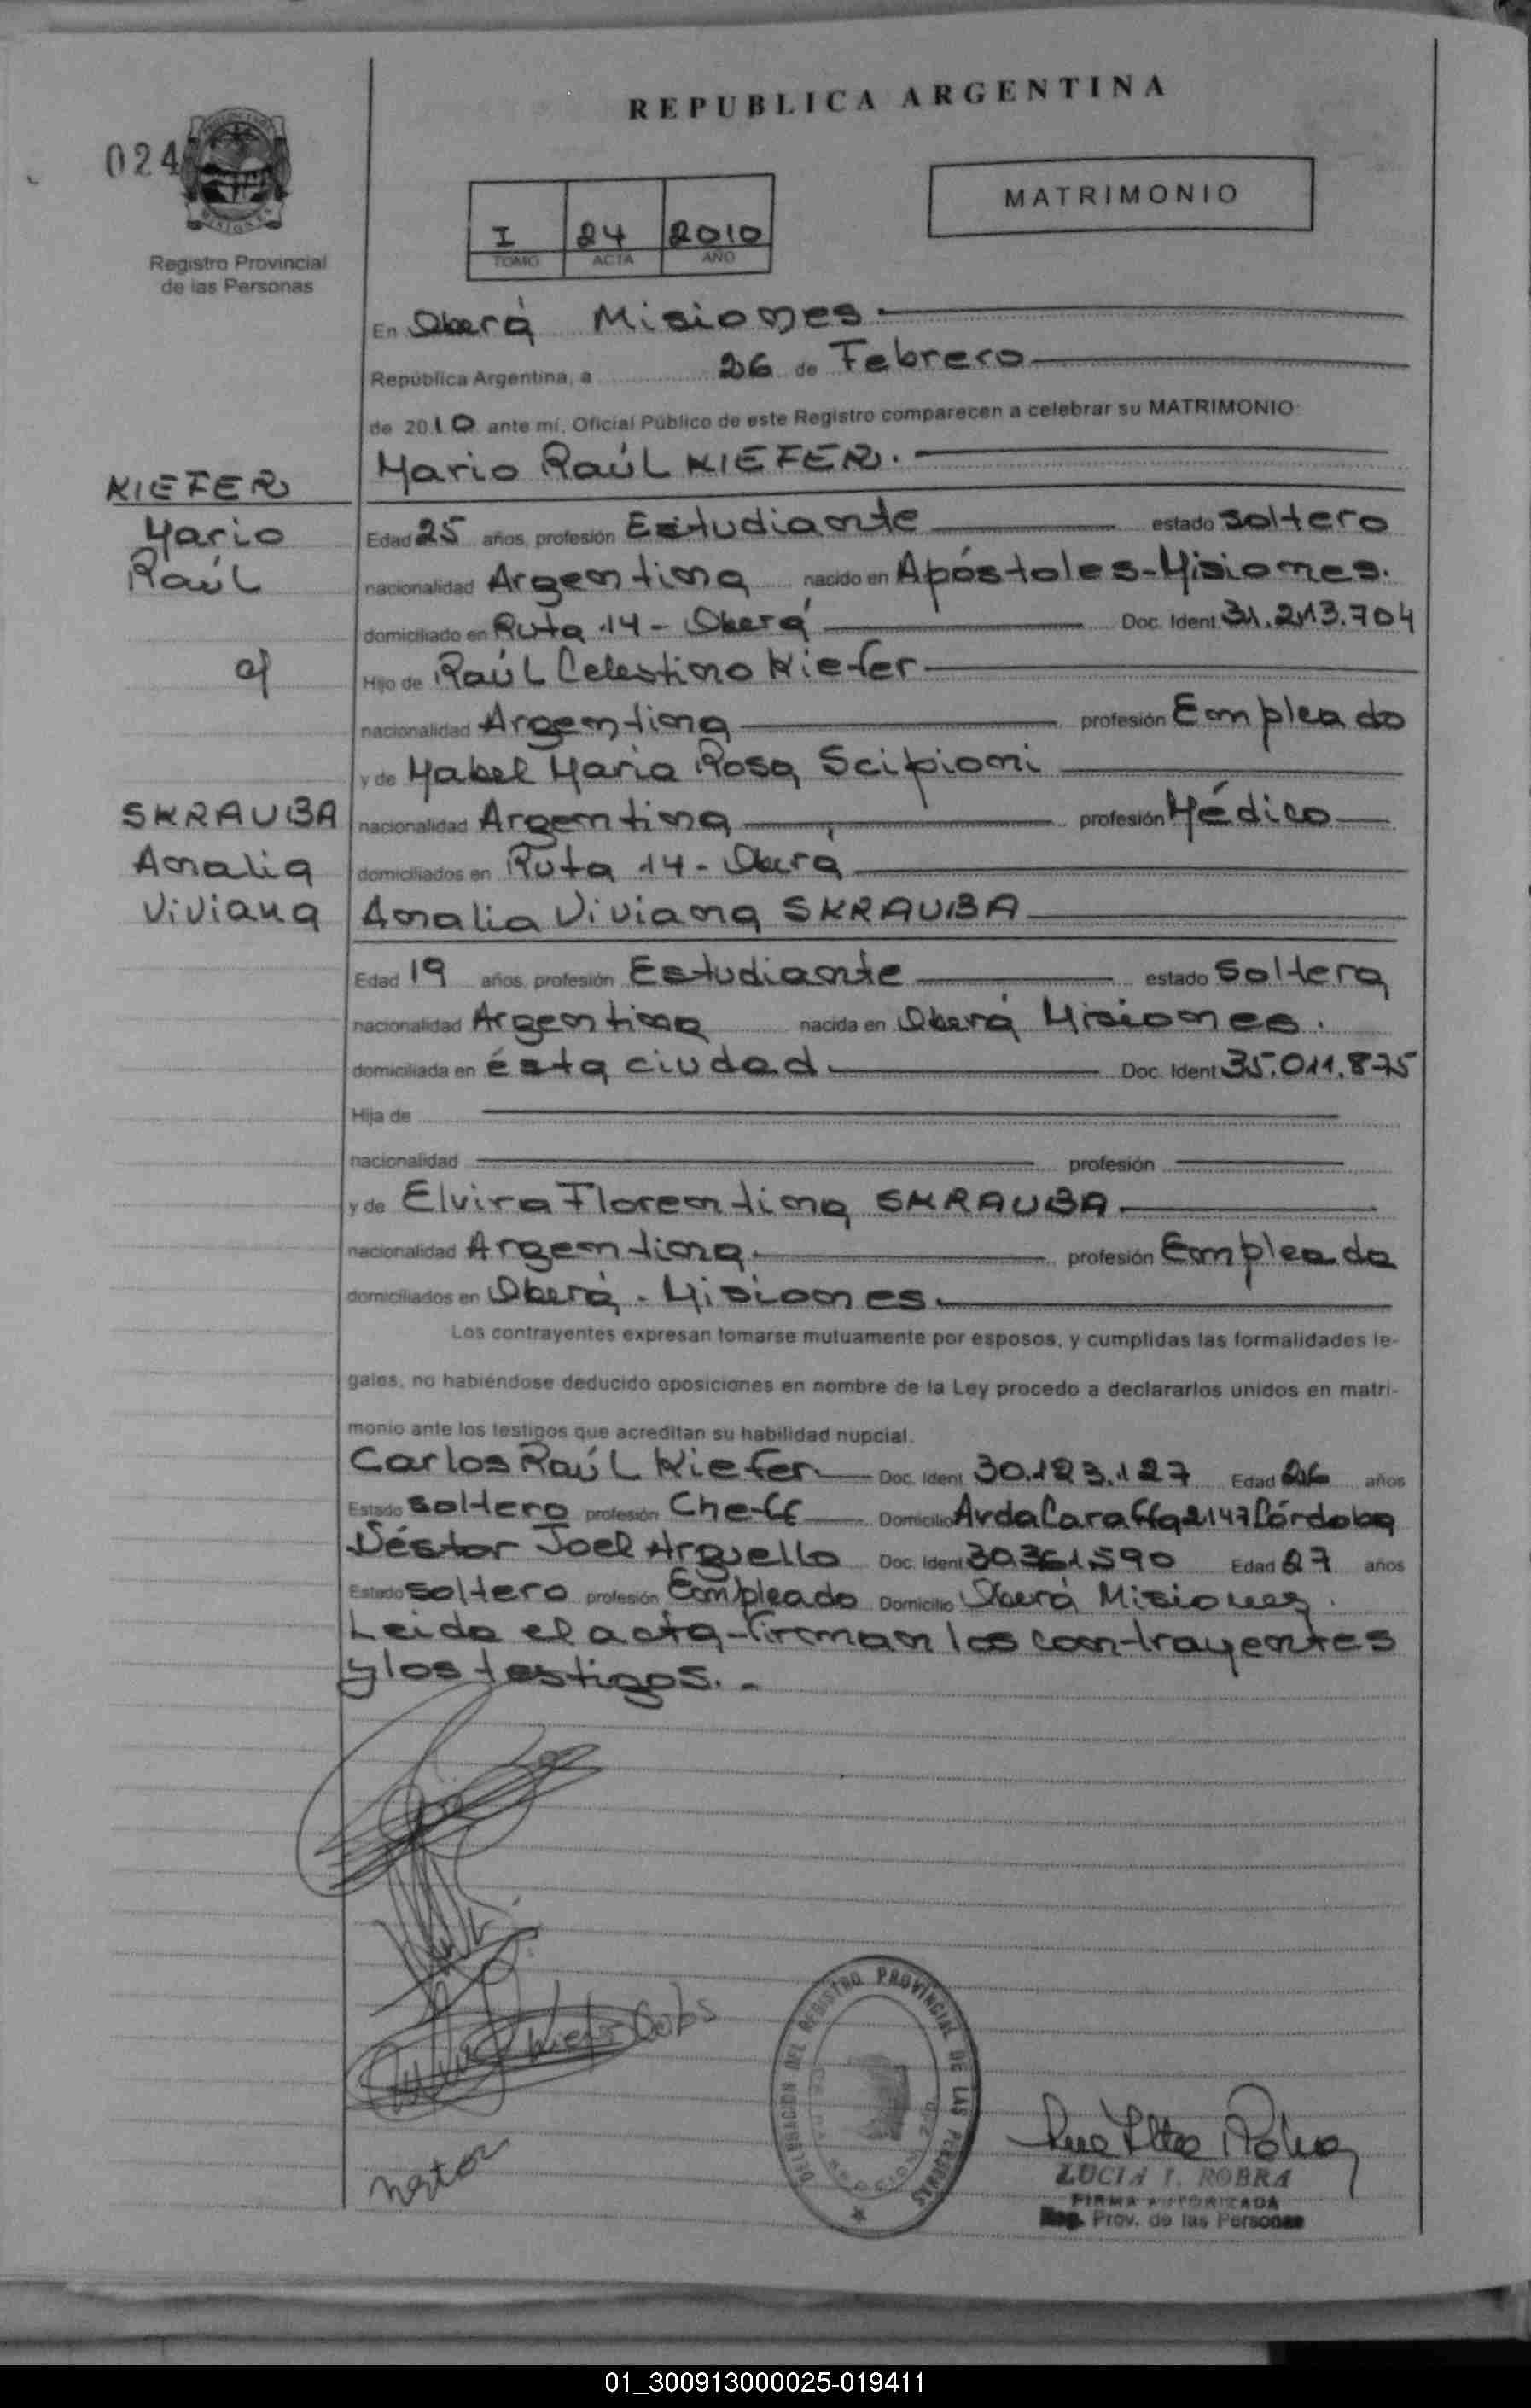 REPUBLICA ARGENTINA
024
MISIONES
Registro Provincial
de las Personas
I 24 2010
TOMO ACTA AÑO
MATRIMONIO
En Oberá Misiones
República Argentina, a 26 de Febrero
de 2010 ante mí, Oficial Público de este Registro comparecen a celebrar su MATRIMONIO:
Mario Raúl KIEFER.
KIEFER
Mario
Raúl
c/
SKRAUBA
Analia
Viviana
Edad 25 años, profesión Estudiante estado soltero
nacionalidad Argentina nacido en Apóstoles-Misiones.
domiciliado en Ruta 14 - Oberá Doc. Ident 31.213.704
Hijo de Raúl Celestino Kiefer
nacionalidad Argentina profesión Empleado
y de Mabel Maria Rosa Scipioni
nacionalidad Argentina profesión Médico
domiciliados en Ruta 14 - Oberá
Analia Viviana SKRAUBA
Edad 19 años, profesión Estudiante estado Soltera
nacionalidad Argentina nacida en Oberá Misiones.
domiciliada en ésta ciudad. Doc. Ident 35.011.875
Hija de
nacionalidad profesión
y de Elvira Florentina SKRAUBA.
nacionalidad Argentina. profesión Empleada
domiciliados en Oberá - Misiones.
Los contrayentes expresan tomarse mutuamente por esposos, y cumplidas las formalidades le-
gales, no habiéndose deducido oposiciones en nombre de la Ley procedo a declararlos unidos en matri-
monio ante los testigos que acreditan su habilidad nupcial.
Carlos Raúl Kiefer Doc. Ident 30.123.127 Edad 26 años
Estado soltero profesión Cheff Domicilio Avda Caraffa 2147 Córdoba
Néstor Joel Arguello Doc. Ident 30.361.590 Edad 27 años
Estado soltero profesión Empleado Domicilio Oberá Misiones.
Leida el acta-firman los contrayentes
y los testigos. -
Kiefer Carlos
nestor
DELEGACION DEL REGISTRO PROVINCIAL DE LAS PERSONAS
LUCIA I. ROBRA
FIRMA AUTORIZADA
Reg. Prov. de las Personas
01_300913000025-019411